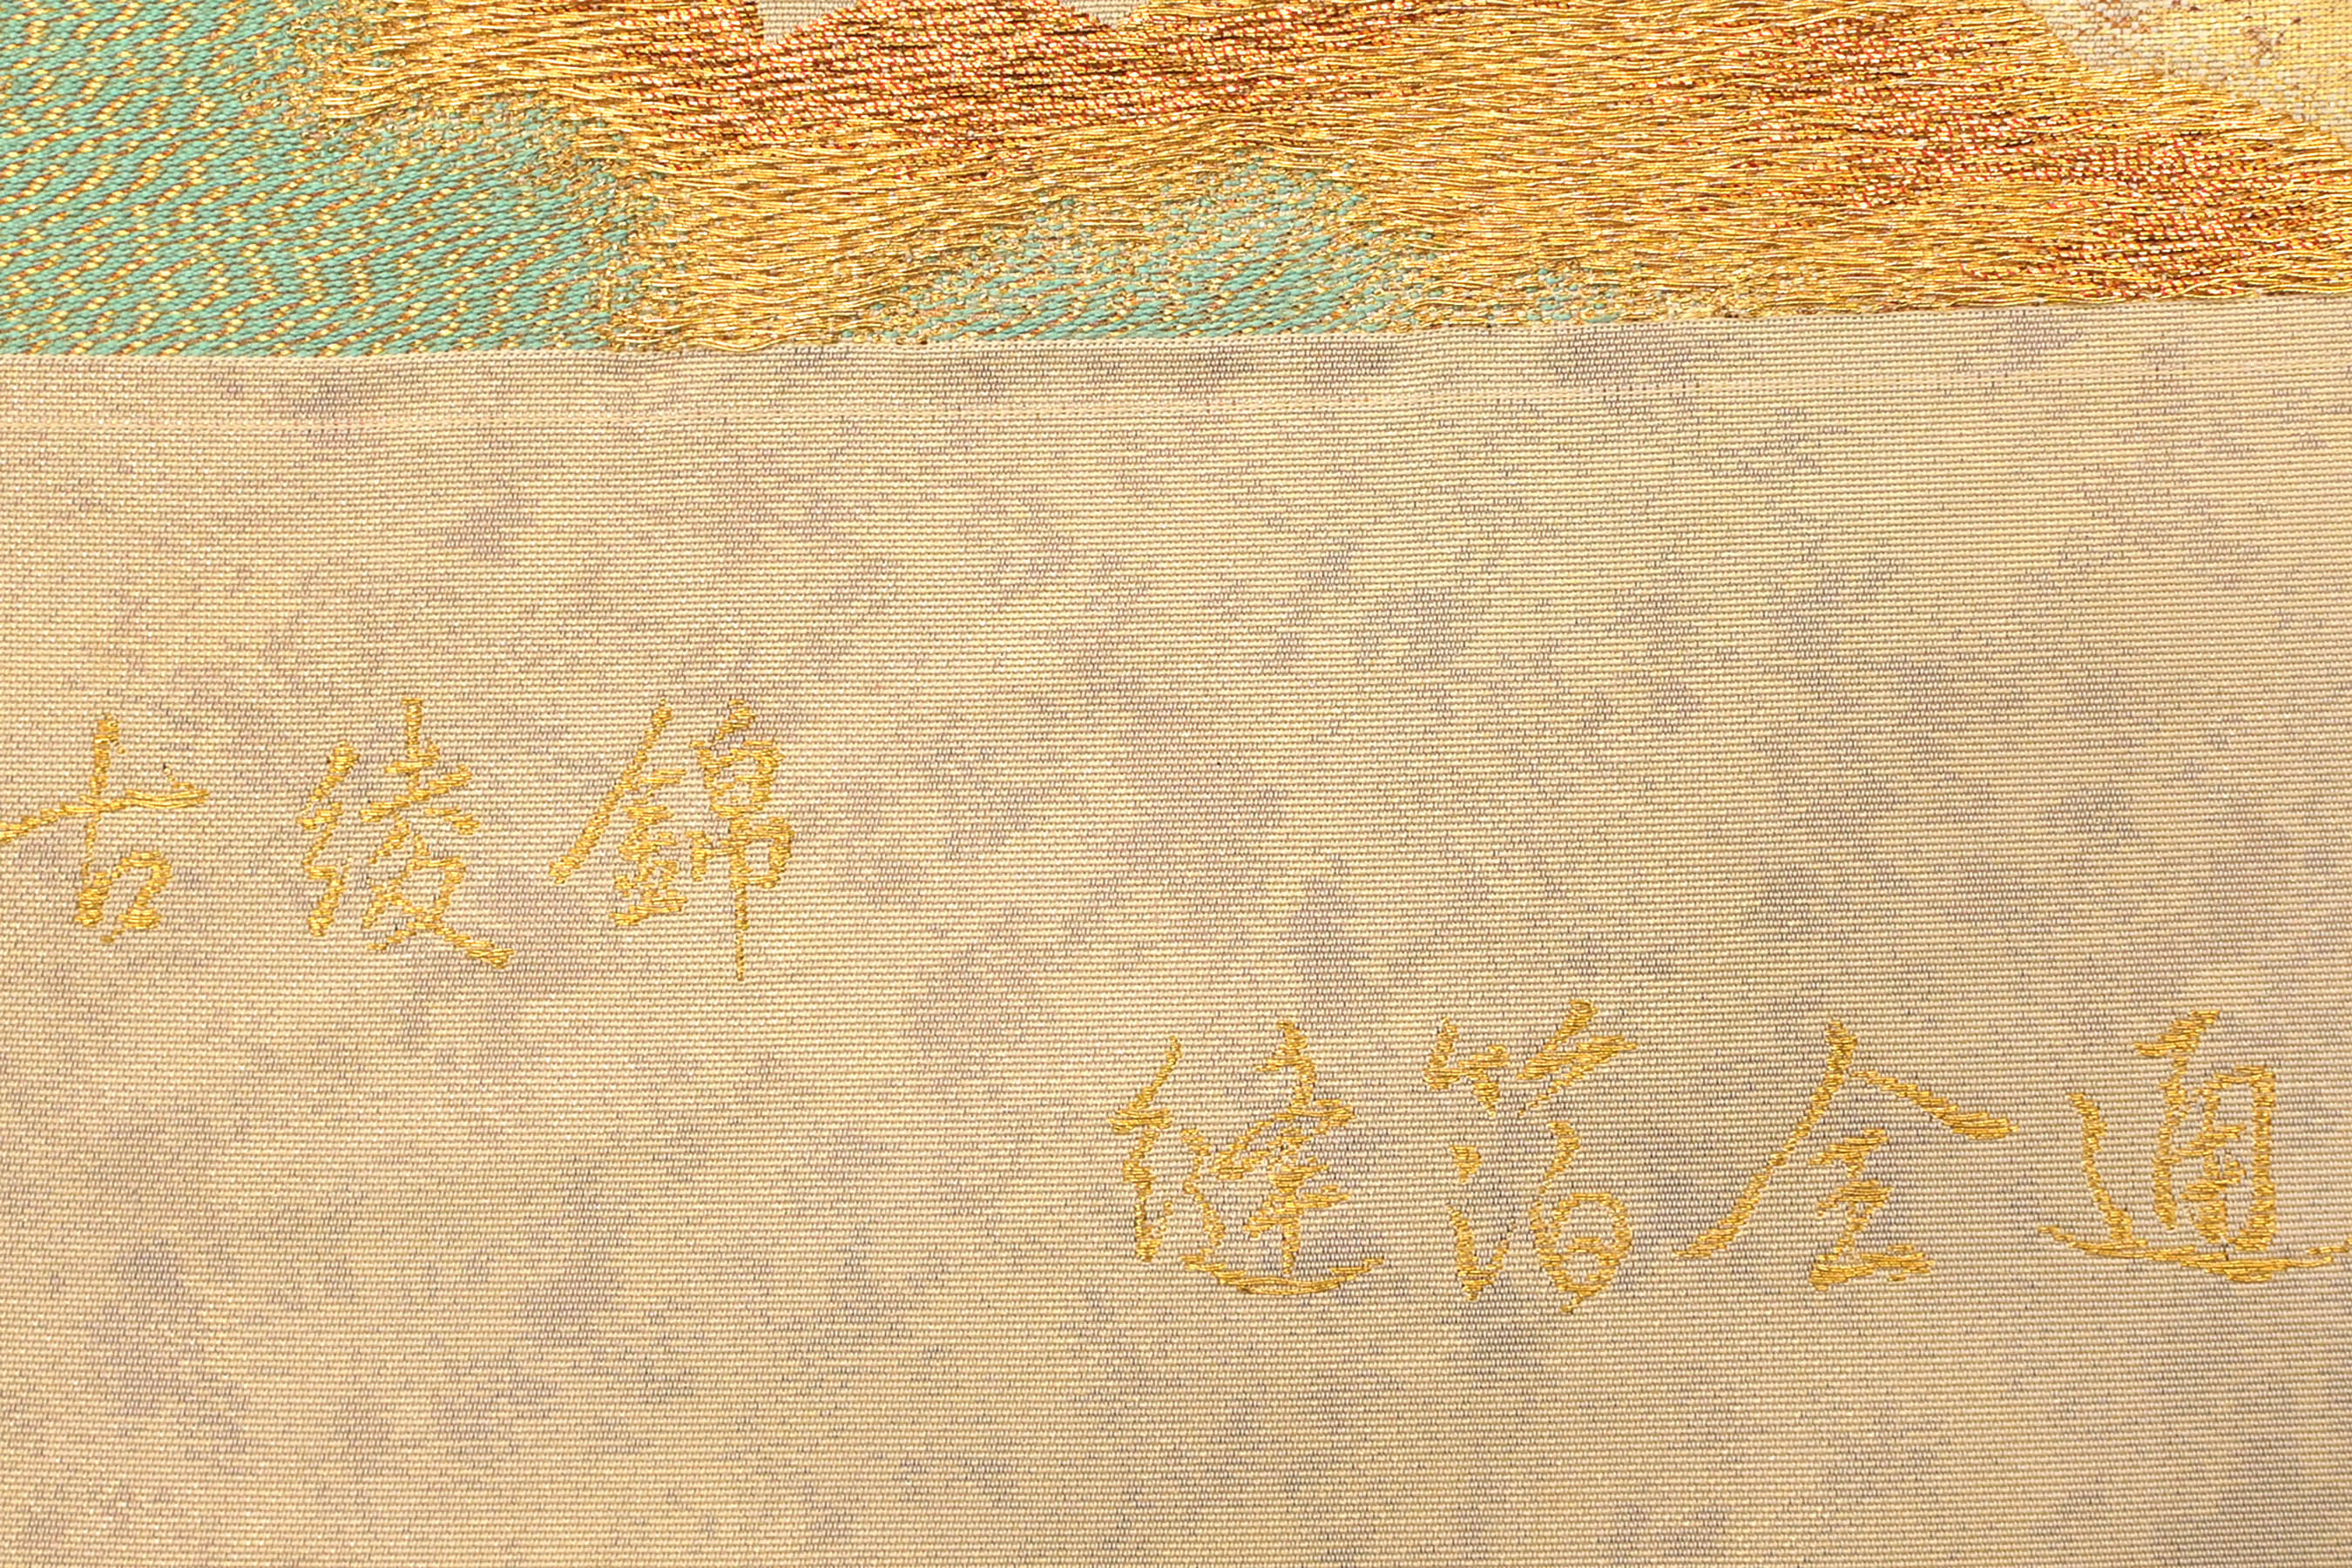 古綾錦
縫箔全通